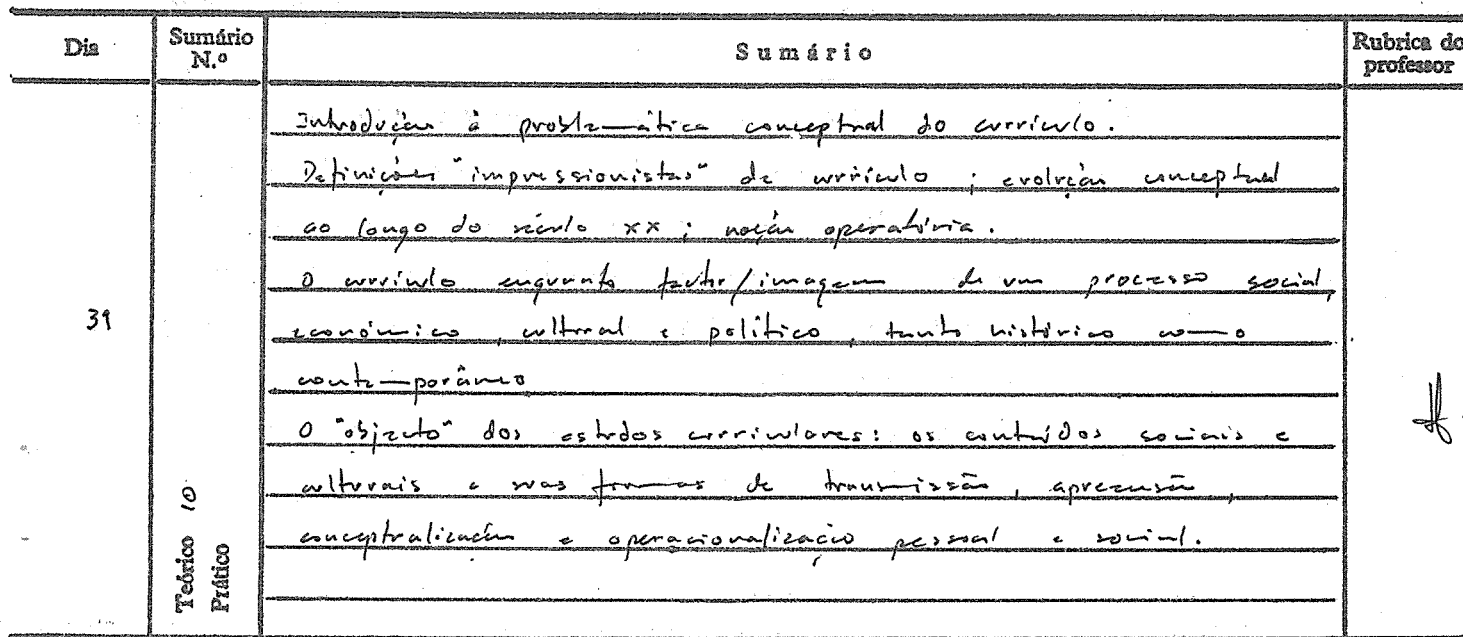 Dia Sumário N.º Sumário Rubrica do professor
Introdução à problemática conceptual do currículo.
Definições "impressionistas" de currículo ; evolução conceptual
ao longo do século XX ; noção operatória.
O currículo enquanto factor/imagem de um processo social,
31
económico, cultural e político, tanto histórico como
contemporâneo
O "objecto" dos estudos curriculares: os conteúdos sociais e
culturais e suas formas de transmissão, apreensão,
conceptualização e operacionalização pessoal e social.
Teórico 10
Prático